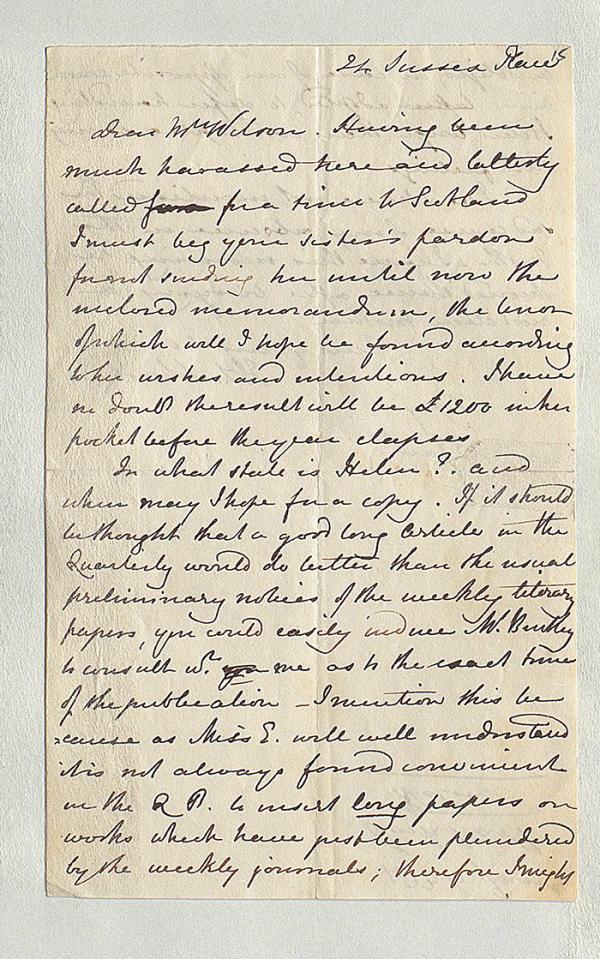 24 Sussex Place
Dear Mrs Wilson. Having been
much harassed here and latterly
called for a time to Scotland
I must beg your sister's pardon
for not sending her until now the
inclosed memorandum, the tenor
of which will I hope be found according
to her wishes and intentions. I have
no doubt the result will be £1200 in her
pocket before the year elapses
In what state is Helen? and
when may I hope for a copy. If it should
be thought that a good long article in the
Quarterly would do better than the usual
preliminary notices of the weekly literary
papers, you could easily induce Mr. Bentley
to consult wt. me as to the exact time
of the publication – I mention this be
=cause as Miss E. will well understand
it is not always found convenient
in the Q R. to insert long papers on
works which have just been plundered
by the weekly journals; therefore I might